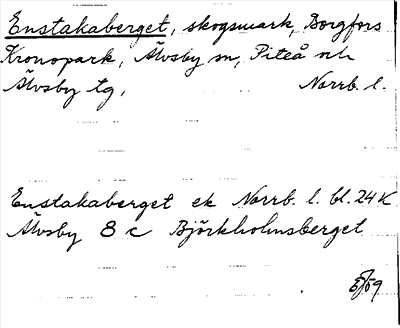 Enstakaberget, skogsmark, Borgfors
Kronopark, Älvsby sn, Piteå
Älvsby tg, Norrb. l.
Enstakaberget ek Norrb. l. bl. 24 K
Älvsby 8 c Björkholmsberget